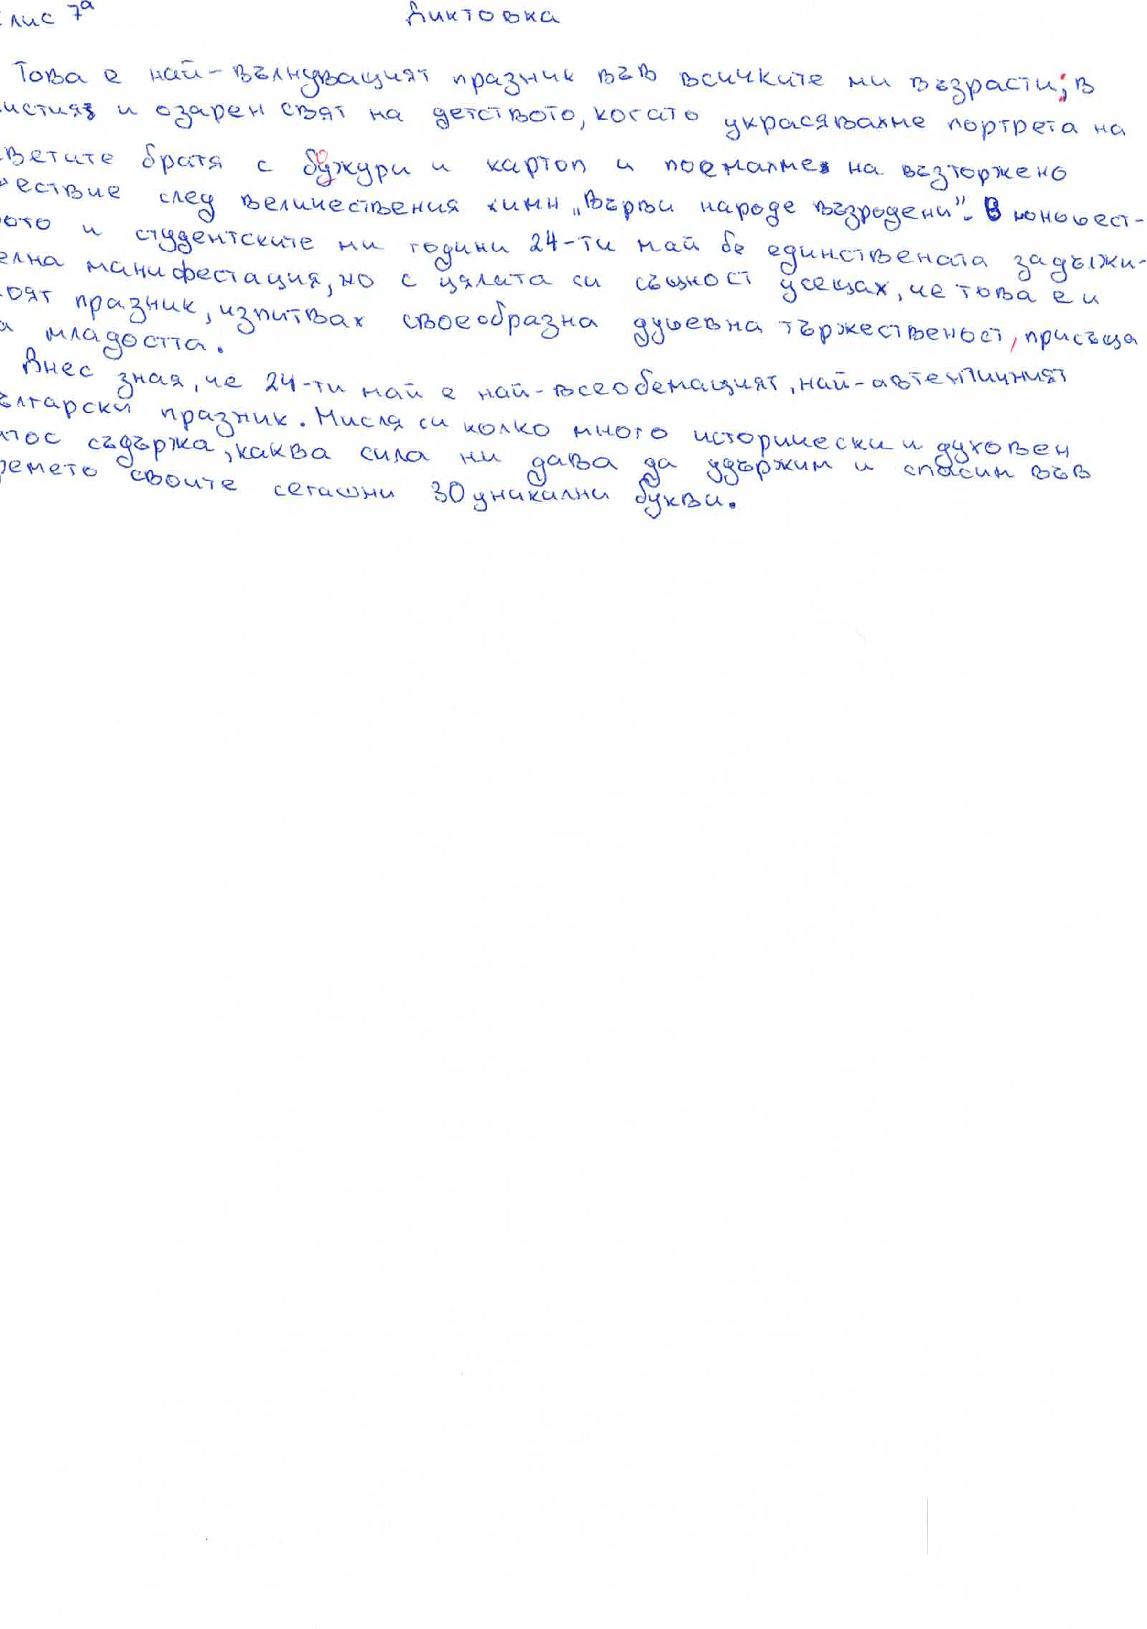 лис 7а Диктовка
Това е най-вълнуващият празник във всичките ми възрасти; в
истия и озарен свят на детството, когато украсявахме портрета на
ветите братя с божури и картоп и поемахме на възторжено
ествие след величествения химн „Върви народе възродени". В юношест-
ото и студентските ми години 24-ти май бе единствената задължи-
елна манифестация, но с цялата си същност усещах, че това е и
оят празник, изпитвах своеобразна душевна тържественост, присъща
а младостта.
Днес зная, че 24-ти май е най-всеобемащият, най-автентичният
ългарски празник. Мисля си колко много исторически и духовен
тос съдържа, каква сила ни дава да удържим и спасим във
ремето своите сегашни 30 уникални букви.